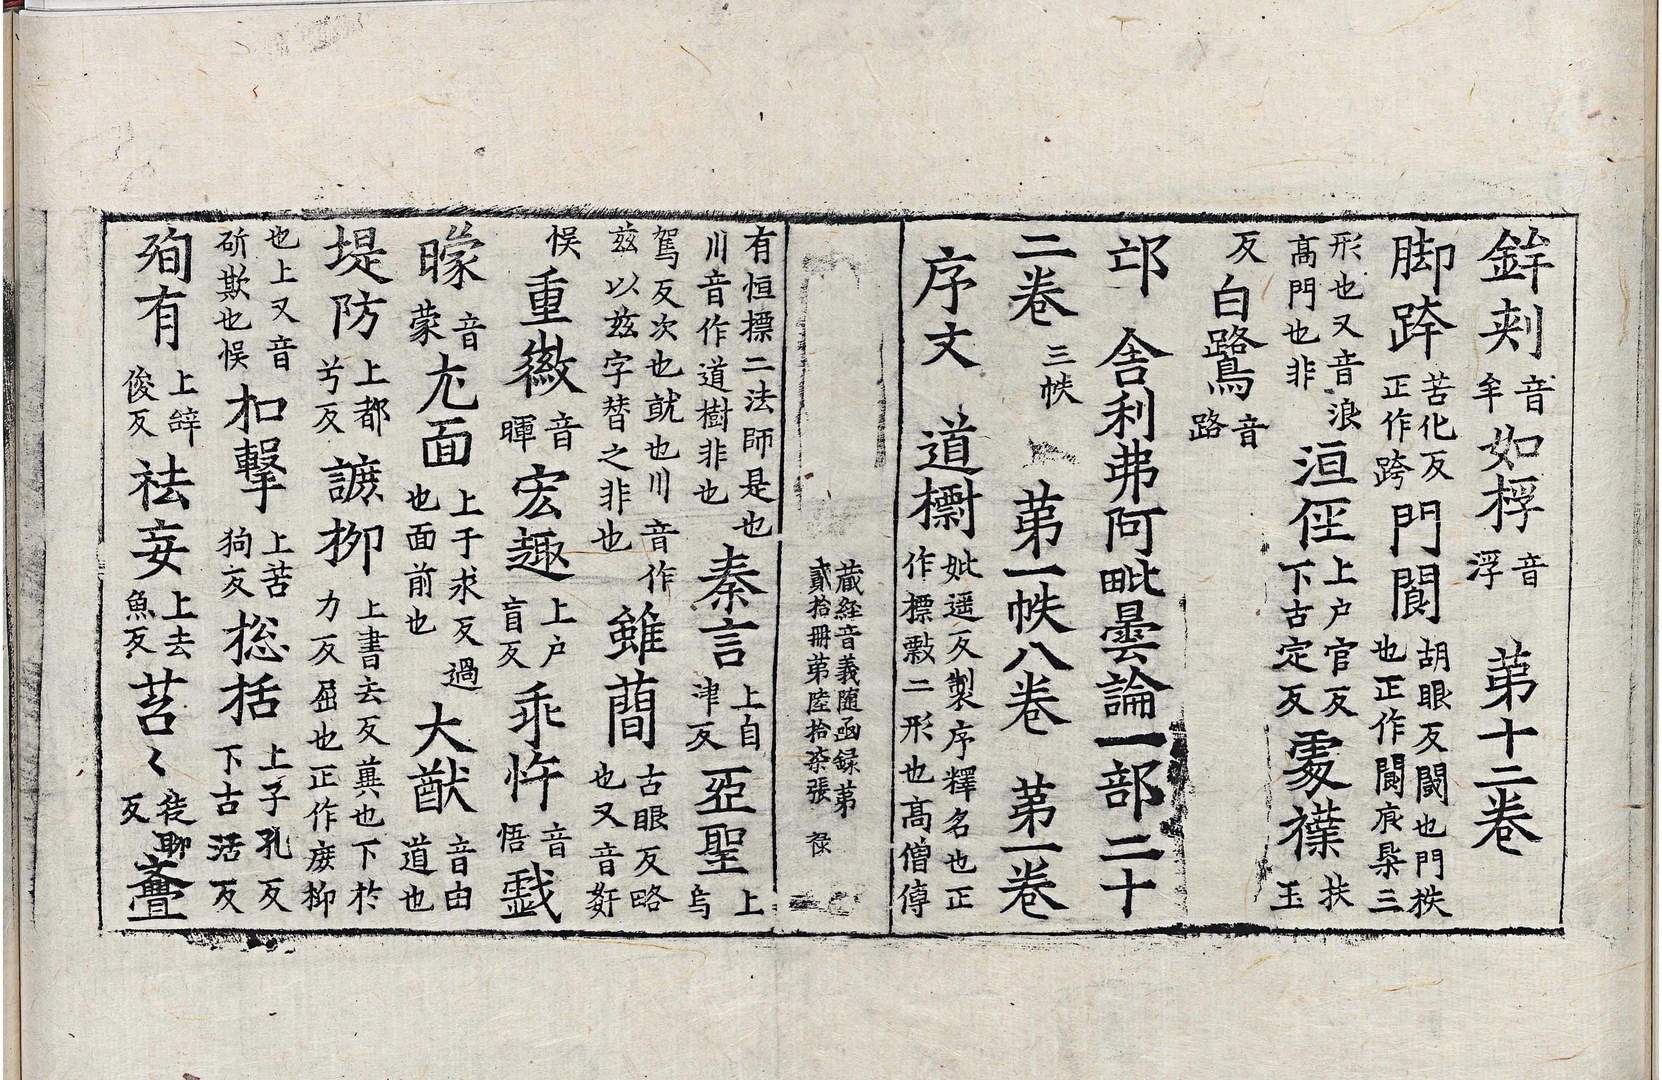 鉾刾音牟如桴音浮　第十二卷
脚跨苦化反正作跨門閬胡眼反閾也門秩也正作閬𢈔椝三
形也又音浪高門也非洹俓上户官反下古定反䨥襟扶玉
反白鷺音路
邙　舍利弗阿毗曇論一部二十
二卷三帙　第一帙八卷　第一卷
序文　道𣚙妣遥反製序釋名也正作標𣀳二形也高僧傳
藏經音義随函録第
貳拾冊第陸拾柒張　祿
有恒標二法師是也川音作道樹非也秦言上自津反亞聖上烏
駕反次也就也川音作兹以兹字替之非也雖蕑古眼反略也又音姧
悮重徽音暉宏趣上户盲反乖忤音悟戲
曚音蒙尢面上于求反過也面前也大猷音由道也
堤防上都兮反謶抑上書去反蕪也下於力反屈也正作庶抑
也上又音斫欺也悮扣擊上苦狗反捴括上子孔反下古活反
殉有上辝俊反祛妄上去魚反苕〻徒聊反亹